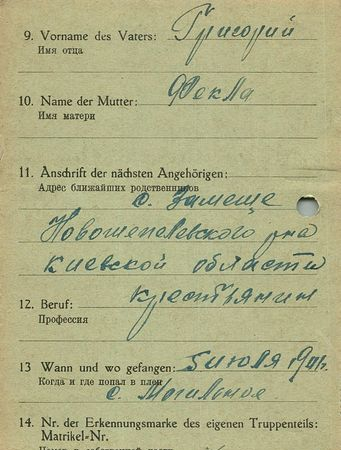 9. Vorname des Vaters: Григорий
Имя отца
10. Name der Mutter: Фекла
Имя матери
11. Anschrift der nächsten Angehörigen:
Адрес ближайших родственников
с. Замеще
Новошепелевского р-на
Киевской области
12. Beruf: крестьянин
Профессия
13 Wann und wo gefangen: 5 июля 1941г.
Когда и где попал в плен
с. Могильное
14. Nr. der Erkennungsmarke des eigenen Truppenteils:
Matrikel-Nr.